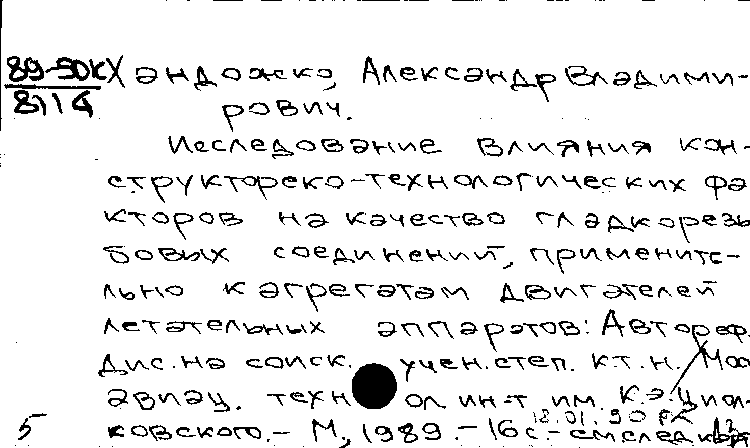 89-50КХ
8114
Хандожко, Александр Владими-
рович.
Исследование влияния кон-
структореко-технологических фа
кторов на качество гладкорезь
бовых соединений, примените-
льно к агрегатам двигателей
летательных аппаратов: Автореф.
Дис. на соиск. учен. степ. к.т.н. / Мос
авиац. техн ол. ин-т им. К.Э. Циол-
5 ковского. - М, 1989. - 16с -
18.01.90